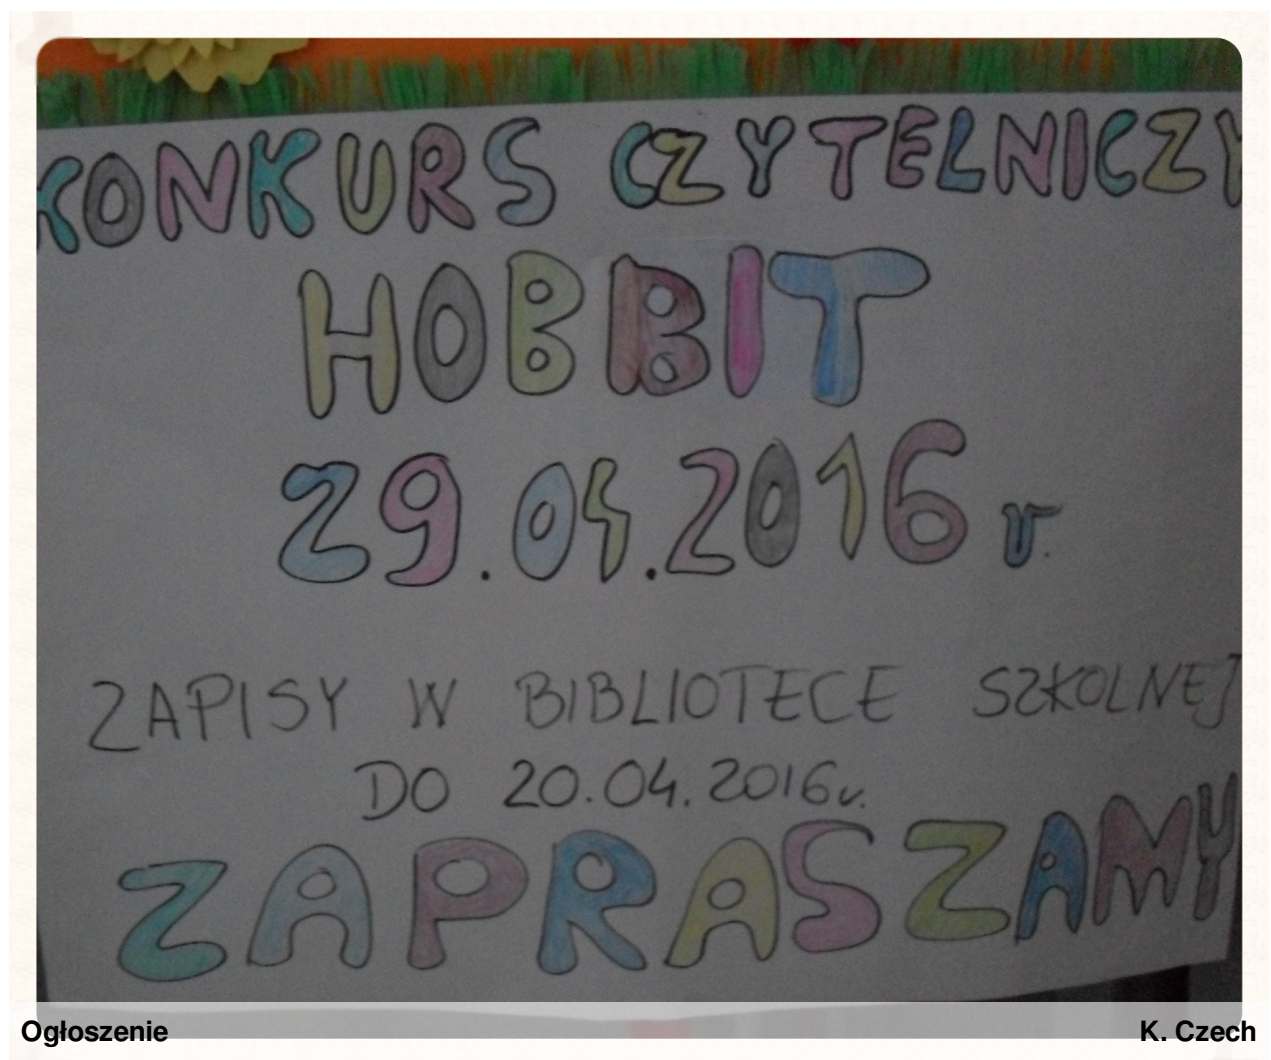 KONKURS CZYTELNICZY
HOBBIT
29.04.2016 r.
ZAPISY W BIBLIOTECE SZKOLNEJ
DO 20.04.2016r.
ZAPRASZAMY
Ogłoszenie
K. Czech